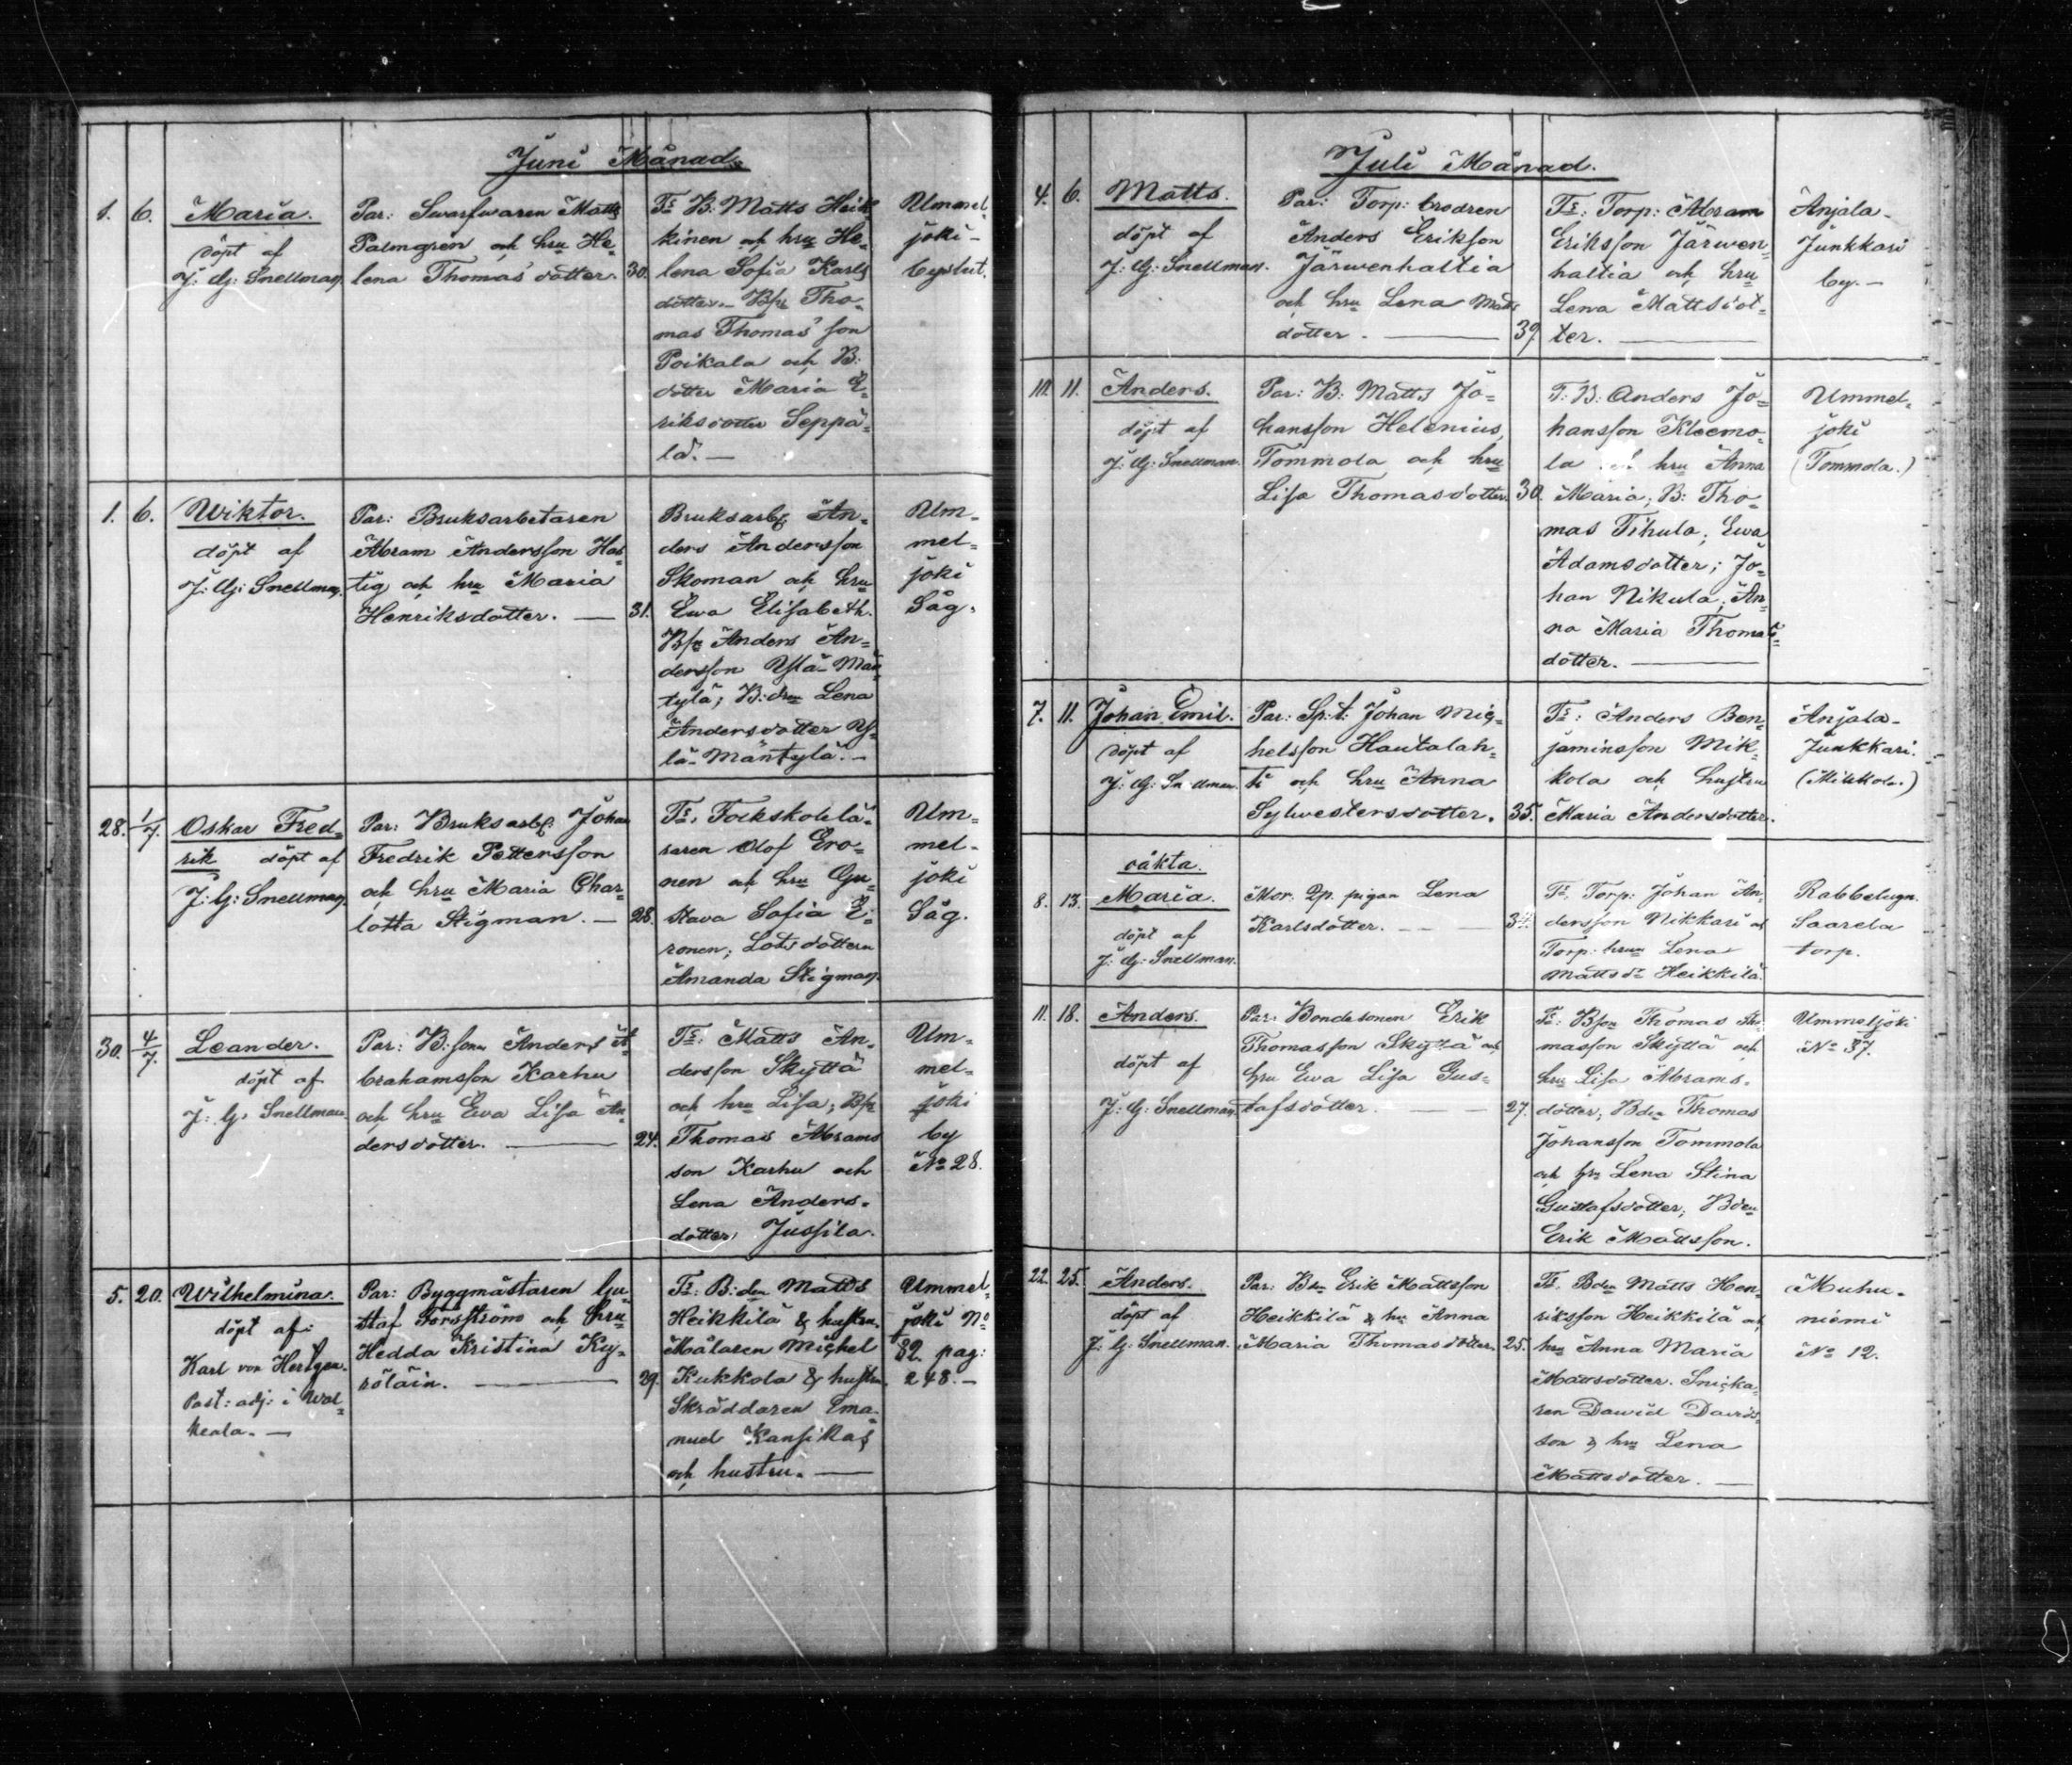 Juni Månad.
1. 6. Maria.
döpt af
J: G: Snellman
Par: Swarfwaren Matts
Palmgren och hru He-
lena Thomasdotter. 30.
Ts B: Matts Heik
kinen och hru He-
lena Sofia Karls
dotter. - Bfr Tho-
mas Thomas son
Poikala och B:
dotter Maria E-
riksdotter Seppä-
lä. -
Ummel-
joki -
1. 6. Wiktor.
döpt af
J: G: Snellman.
Par: Bruksarbetaren
Abram Andersson Has
tig och hru Maria
Henriksdotter. — 31.
Bruksarb. An-
ders Andersson
Skoman och hru
Ewa Elisabeth.
Bfr Anders An-
dersson Ylä-Män
tylä; B:drn Lena
Andersdotter Y-
lä-Mäntylä. -
Um-
mel-
joki
Såg.
28. 1/7. Oskar Fred-
rik döpt af
J: G: Snellman.
Par: Bruksarb. Johan
Fredrik Pettersson
och hru Maria Char-
lotta Stigman. — 28.
Ts. Folkskolelä-
raren Olof Ero-
nen och hru Gu-
stava Sofia E-
ronen; Lotsdottern
Amanda Stigman.
Um-
mel-
joki
Såg.
30. 4/7. Leander.
döpt af
J: G: Snellman
Par: B:sonen Anders A-
brahamsson Karhu
och hru Ewa Lisa An-
dersdotter. — 24.
Ts: Matts An-
dersson Skyttä
och hru Lisa; Bfr
Thomas Abrams
son Karhu och
Lena Anders-
dotter Jussila.
Um-
mel-
joki
by
No 28.
5. 20. Wilhelmina.
döpt af:
Karl von Hertzen
Past: adj: i Wal-
keala. -
Par: Byggmästaren Gu-
staf Forsström och hru
Hedda Kristina Ky-
röläin. — 29.
Ts: B:den Matts
Heikkilä & hustru.
Målaren Michel
Kukkola & hustru.
Skräddaren Ema-
nuel Kansikas
och hustru. —
Ummel-
joki No
32. pag:
248. -
Juli Månad.
4. 6. Matts.
döpt af
J: G: Snellman.
Par: Torp: brodren
Anders Erikson
Järwenhaltia
och hru Lena Matts
dotter. — 39.
Ts: Torp: Abram
Eriksson Järwen-
haltia och hru
Lena Mattsdot-
ter. —
Anjala-
Junkkari
by. -
10. 11. Anders.
döpt af
J: G: Snellman.
Par: B: Matts Jo-
hansson Helenius,
Tommola och hru
Lisa Thomasdotter. 30.
T: B: Anders Jo-
hansson Kleemo-
la hru Anna
Maria; B: Tho-
mas Tihula; Ewa
Adamsdotter; Jo-
han Nikula; An-
na Maria Thomas-
dotter. —
Ummel-
joki
(Tommola.)
7. 11. Johan Emil.
döpt af
J: G: Snellman.
Par: Sp:t: Johan Mic-
helsson Hautalah-
ti och hru Anna
Sylwestersdotter. 35.
Ts: Anders Ben-
jaminsson Mik-
kola och hustru
Maria Andersdotter.
Anjala-
Junkkari.
(Mikkola.)
oäkta.
8. 13. Maria.
döpt af
J: G: Snellman.
Mor. Qp. pigan Lena
Karlsdotter. —
Ts. Torp: Johan An-
dersson Nikkari och
Torp: hrun Lena
Mattsdr Heikkilä.
Rabbelugn.
Saarela
torp.
11. 18. Anders.
döpt af
J: G: Snellman.
Par: Bondesonen Erik
Thomasson Skyttä och
hru Ewa Lisa Gus-
tafsdotter. — 27.
Ts: Bson Thomas Tho
masson Skyttä och
hru Lisa Abrams-
dotter; Bdn Thomas
Johansson Tommola
och hru Lena Stina
Gustafsdotter; Bden
Erik Mattsson.
Ummeljoki
No 37.
22. 25. Anders.
döpt af
J: G: Snellman.
Par: Bdn Erik Mattsson
Heikkilä & hru Anna
Maria Thomasdotter. 25.
Ts. Bden Matts Hen-
riksson Heikkilä och
hru Anna Maria
Mattsdotter. Snicka-
ren Dawid Davids-
son & hru Lena
Mattsdotter. —
Muhu-
niemi
No 12.